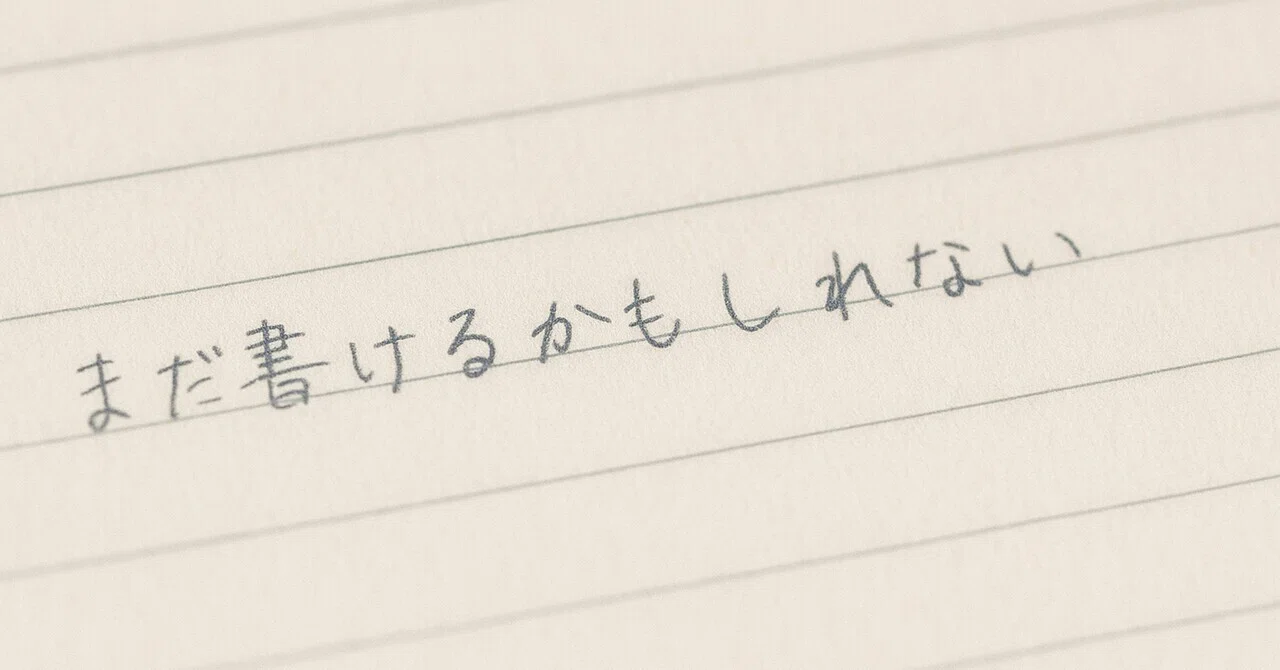 まだ書けるかもしれない